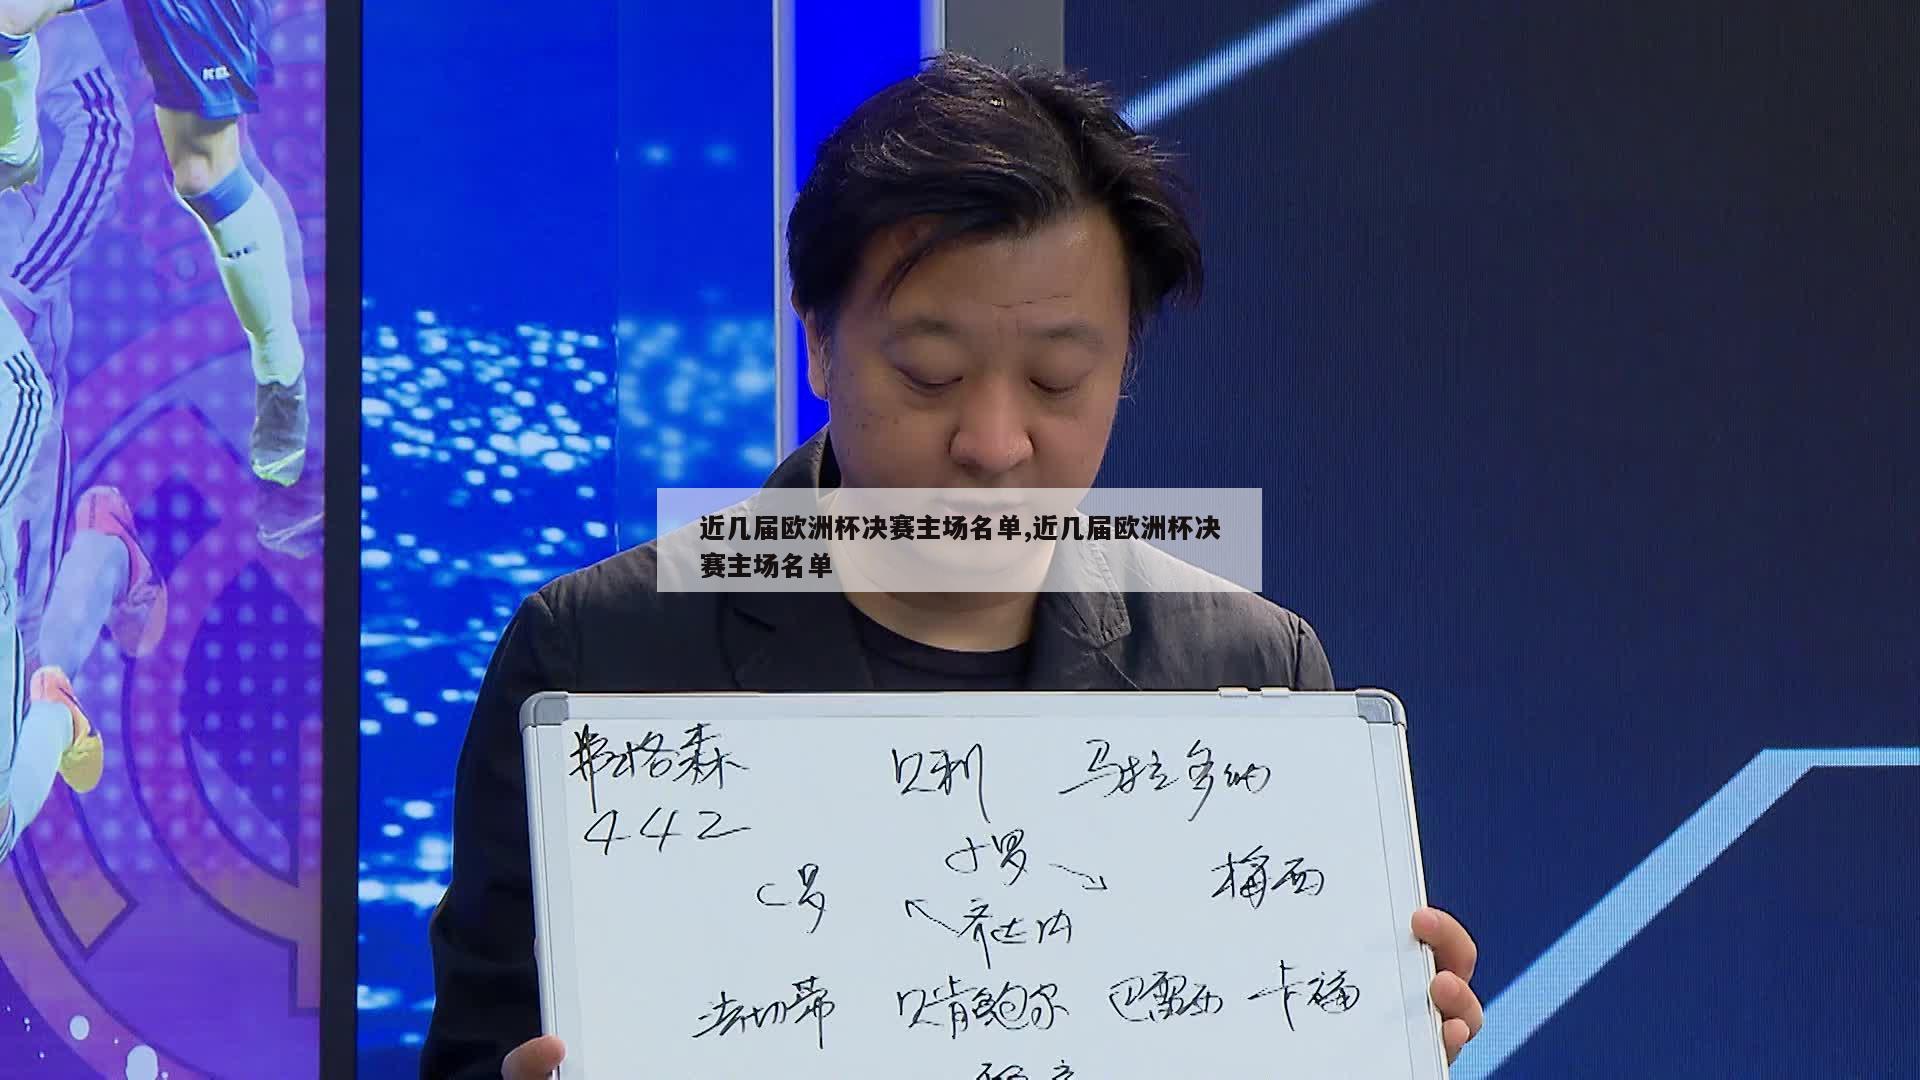 近几届欧洲杯决赛主场名单,近几届欧洲杯决
赛主场名单
弗格森 贝利 马拉多纳
442
小罗
C罗 梅西
齐达内
法切蒂 贝肯鲍尔 巴雷西 卡福